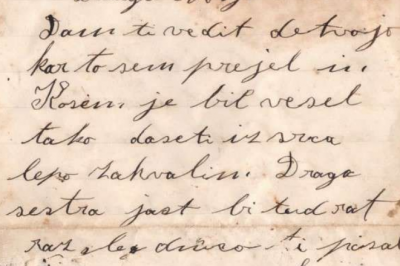 Dam ti vedit de tvojo
karto sem prejel in
Kosem je bil vesel
tako daseti iz srca
lepo zahvalim. Draga
sestra jast bi tud rat